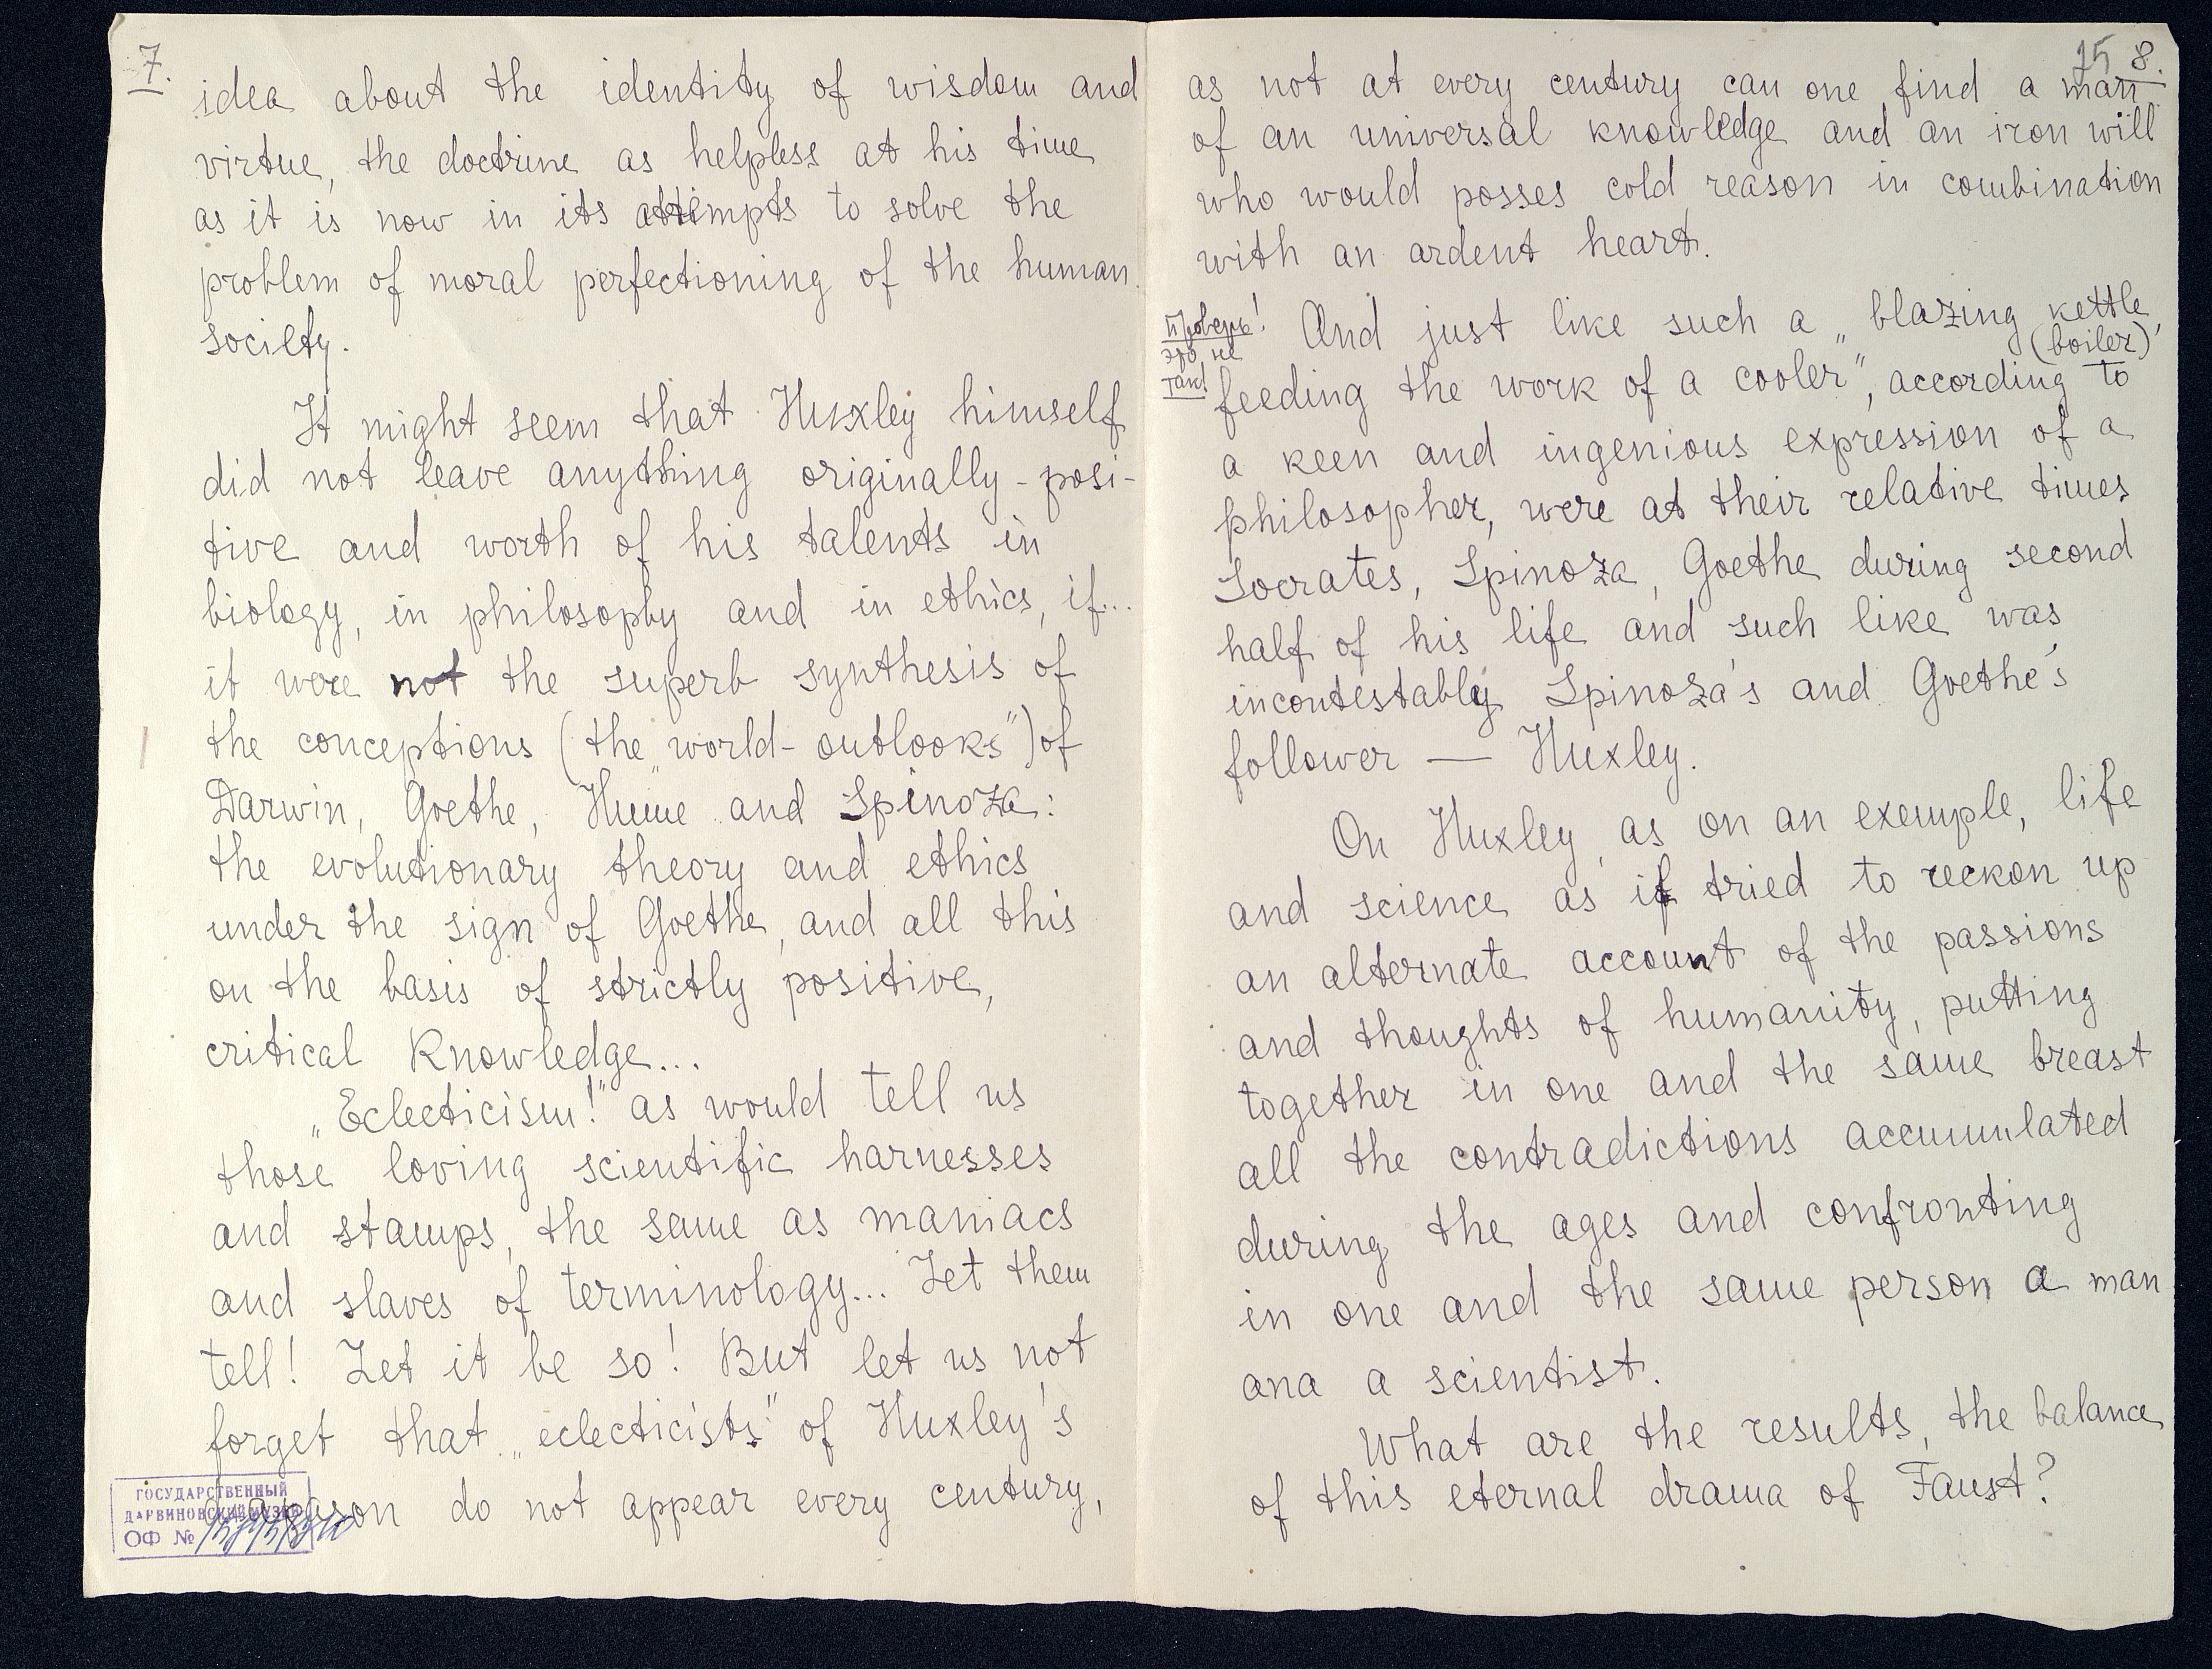 7.
idea about the identity of wisdom and
virtue, the doctrine as helpless at his time
as it is now in its attempts to solve the
problem of moral perfectioning of the human
society.
It might seem that Huxley himself
did not leave anything originally-posi-
tive and worth of his talents in
biology, in philosophy and in ethics, if...
it were not the superb synthesis of
the conceptions (the „world-outlooks") of
Darwin, Goethe, Hume and Spinoza:
the evolutionary theory and ethics
under the sign of Goethe, and all this
on the basis of strictly positive,
critical Knowledge...
„Eclecticism!" as would tell us
those loving scientific harnesses
and stamps, the same as maniacs
and slaves of terminology... Let them
tell! Let it be so! But let us not
forget that „eclecticists" of Huxley's
diapason do not appear every century,
ГОСУДАРСТВЕННЫЙ
ДАРВИНОВСКИЙ МУЗЕЙ
ОФ №
15 8.
as not at every century can one find a man
of an universal knowledge and an iron will
who would posses cold reason in combination
with an ardent heart.
Проверь!
это не
так!
And just like such a „blazing kettle,
(boiler)
feeding the work of a cooler", according to
a keen and ingenious expression of a
philosopher, were at their relative times
Socrates, Spinoza, Goethe during second
half of his life and such like was
incontestably Spinoza's and Goethe's
follower — Huxley.
On Huxley, as on an exemple, life
and science as if tried to reckon up
an alternate account of the passions
and thoughts of humanity, putting
together in one and the same breast
all the contradictions accumulated
during the ages and confronting
in one and the same person a man
ana a scientist.
What are the results, the balance
of this eternal drama of Faust?